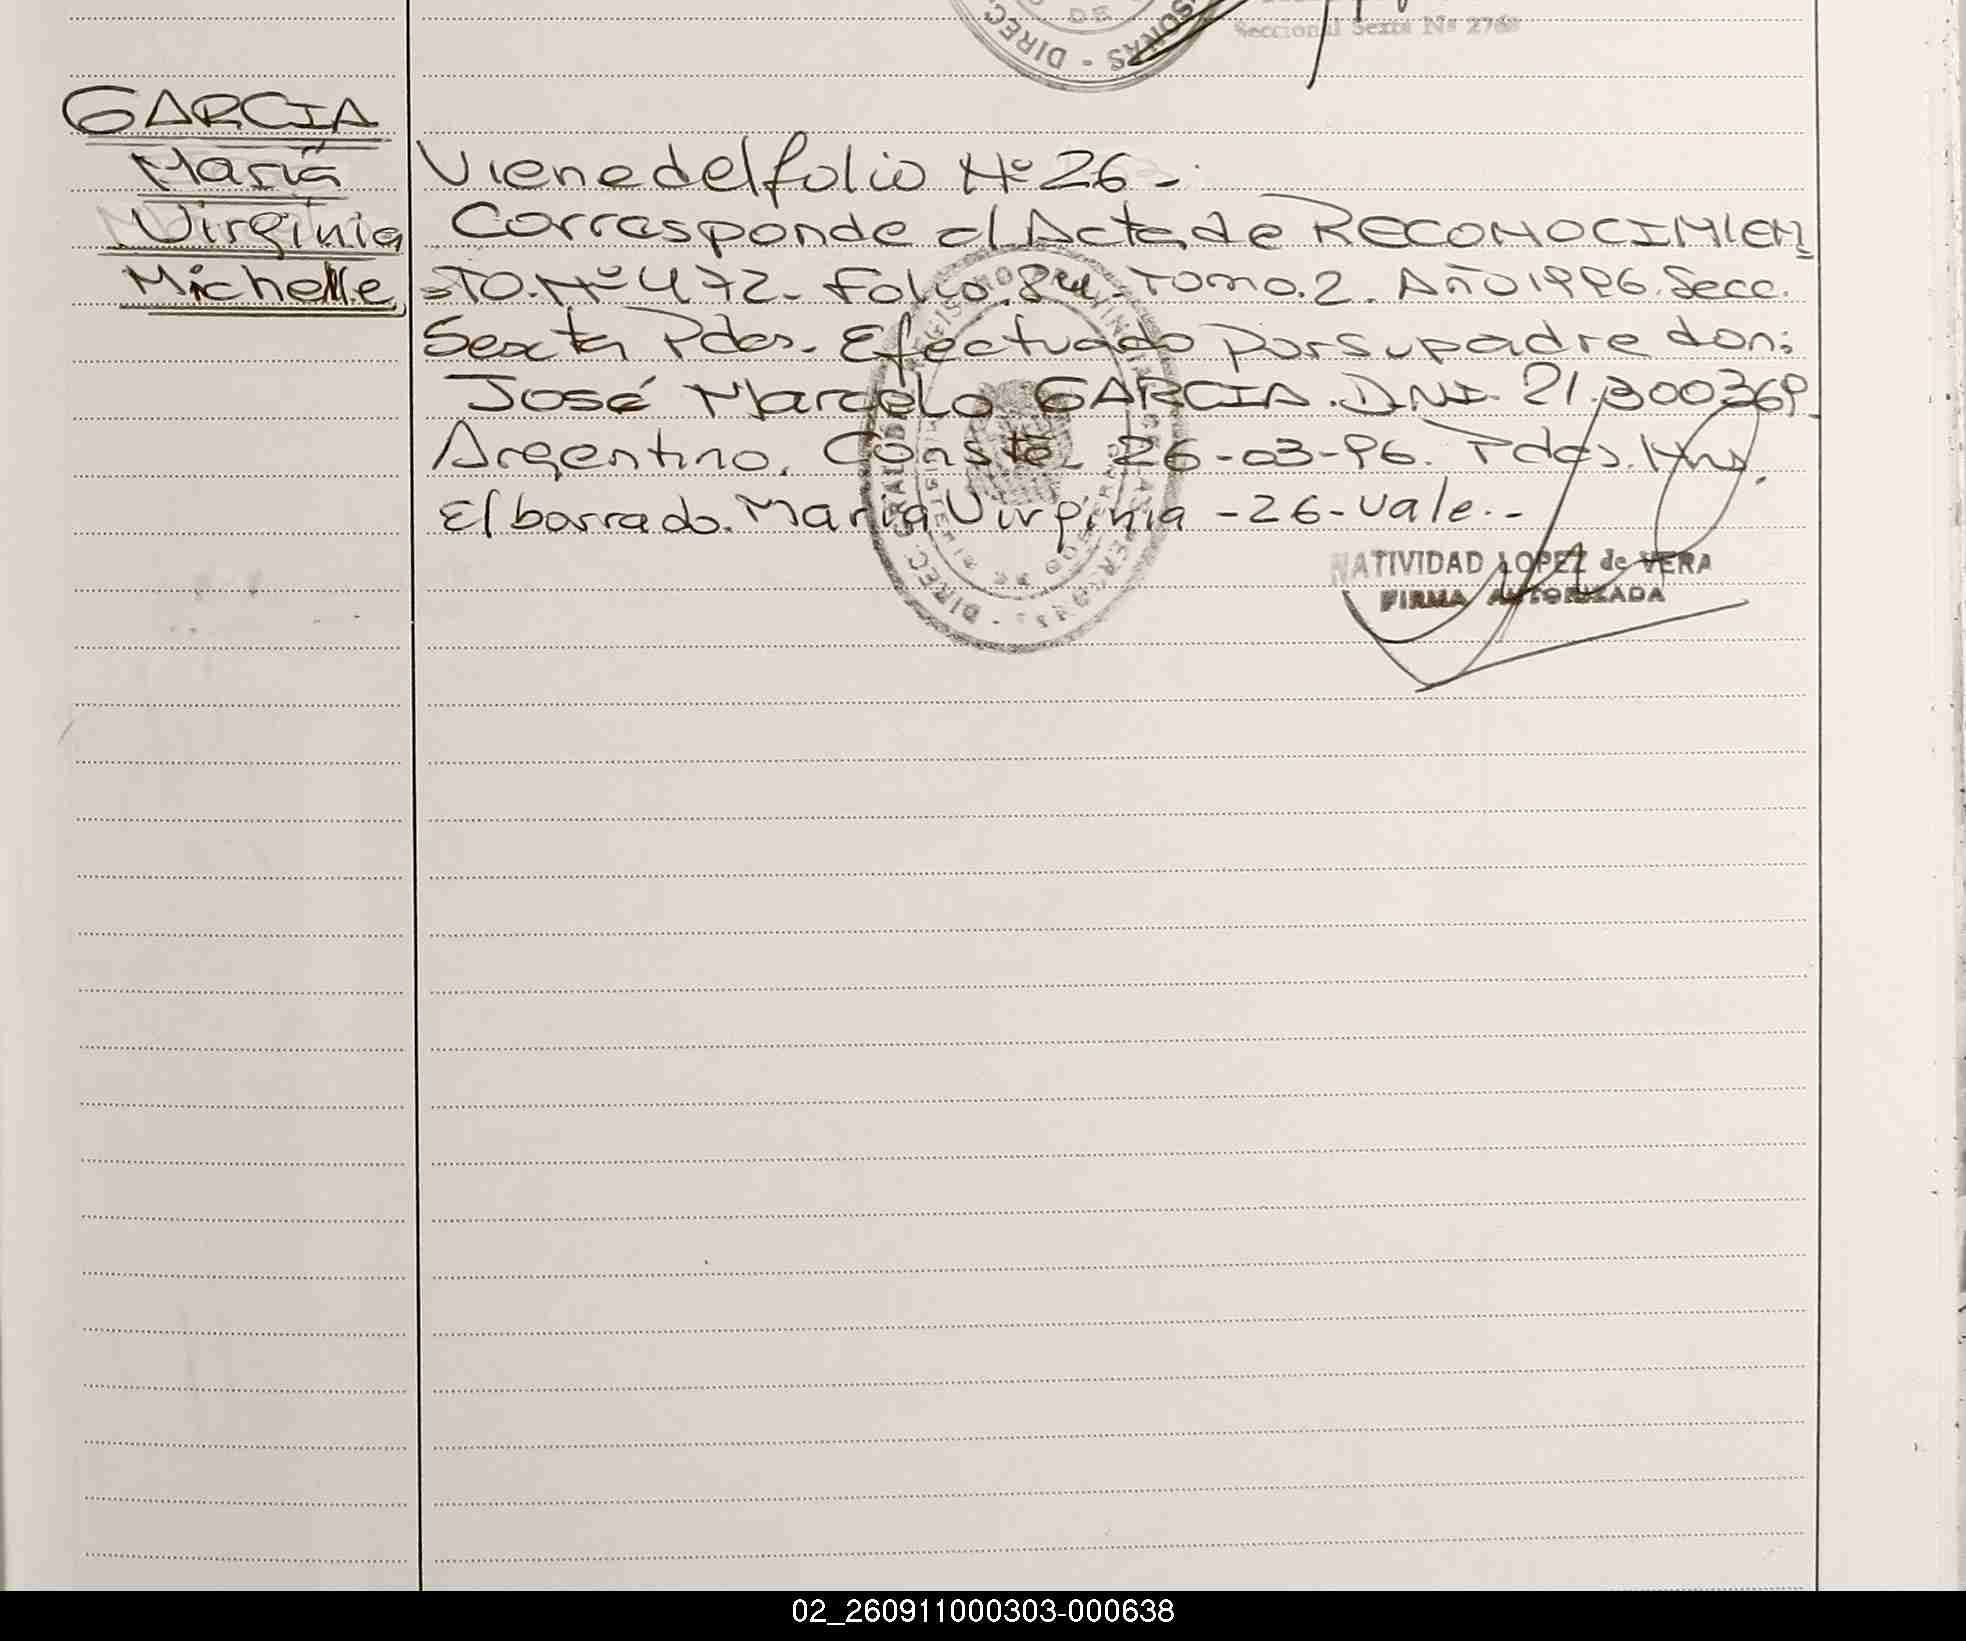 DIREC. - SONAS
DE
Seccional Sexta Nº 2768
GARCIA
María
Virginia
Michelle
Viene del folio Nº 26 -.
Corresponde al Acta de RECONOCIMIEN
TO. Nº 472. Folio. Tomo. 2. Año 1996. Secc.
Sexta Pdas. Efectuado por su padre don:
José Marcelo GARCIA. DNI. 21.300369.
Argentino. Conste. 26-03-96. Pdas. Mns.
El borrado. María Virginia - 26 - Vale. -
NATIVIDAD LOPEZ de VERA
FIRMA AUTORIZADA
02_260911000303-000638